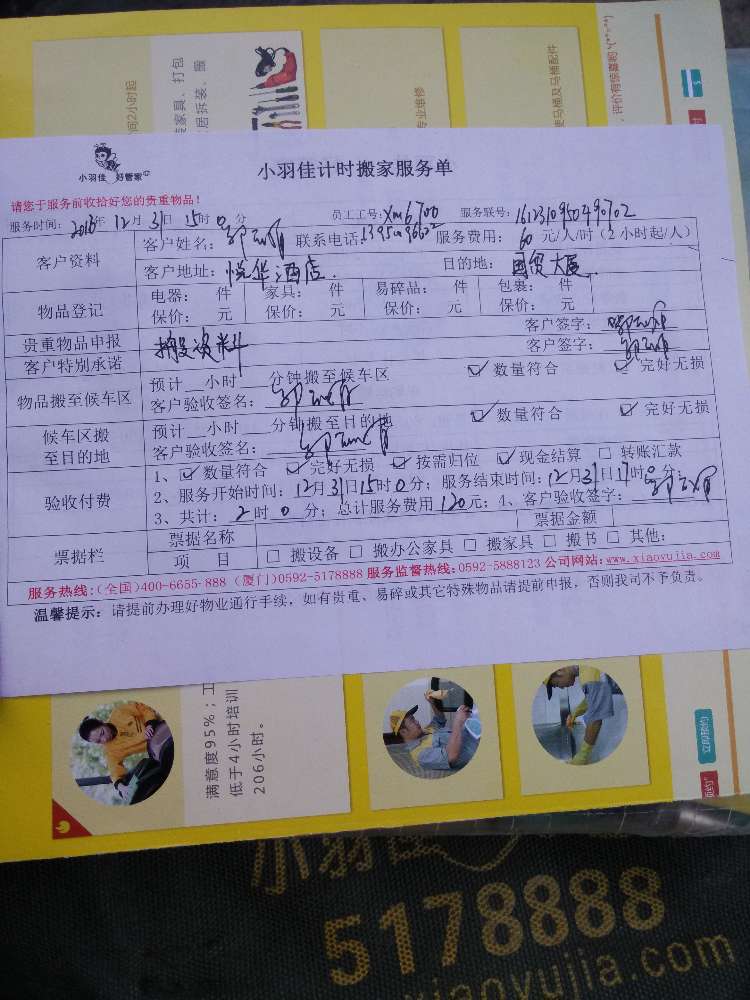 间2小时起
装家具、打包
居拆装、搬
专业维修
便马桶及马桶配件
评价有惊喜哟
小羽佳 好管家
小羽佳计时搬家服务单
请您于服务前收拾好您的贵重物品!
服务时间: 2016年 12月 31日 15时 0分 员工工号: Xm6700 服务联号: 1612310950490702
客户资料 客户姓名: 联系电话: 服务费用: 60 元/人/时(2小时起/人)
客户地址: 悦华酒店. 目的地: 国贸大厦.
物品登记 电器: 件 家具: 件 易碎品: 件 包裹: 件
保价: 元 保价: 元 保价: 元 保价: 元
贵重物品申报 客户签字:
客户特别承诺 搬资料 客户签字:
物品搬至候车区 预计 小时 分钟搬至候车区 ☑ 数量符合 ☑ 完好无损
客户验收签名:
候车区搬至目的地 预计 小时 分钟搬至目的地 ☑ 数量符合 ☑ 完好无损
客户验收签名:
验收付费 1、☑ 数量符合 ☑ 完好无损 ☑ 按需归位 ☑ 现金结算 □ 转账汇款
2、服务开始时间: 12月31日15时0分; 服务结束时间: 12月31日17时0分;
3、共计: 2 时 0 分; 总计服务费用 120元; 4、客户验收签字:
票据栏 票据名称 票据金额
项 目 □ 搬设备 □ 搬办公家具 □ 搬家具 □ 搬书 □ 其他:
服务热线:(全国)400-6655-888 (厦门)0592-5178888 服务监督热线:0592-5888123 公司网站:www.xiaoyujia.com
温馨提示: 请提前办理好物业通行手续, 如有贵重、易碎或其它特殊物品请提前申报, 否则我司不予负责。
满意度95%; 工
低于4小时培训
206小时。
立即预约
预约
小羽佳
5178888
xiaoyujia.com